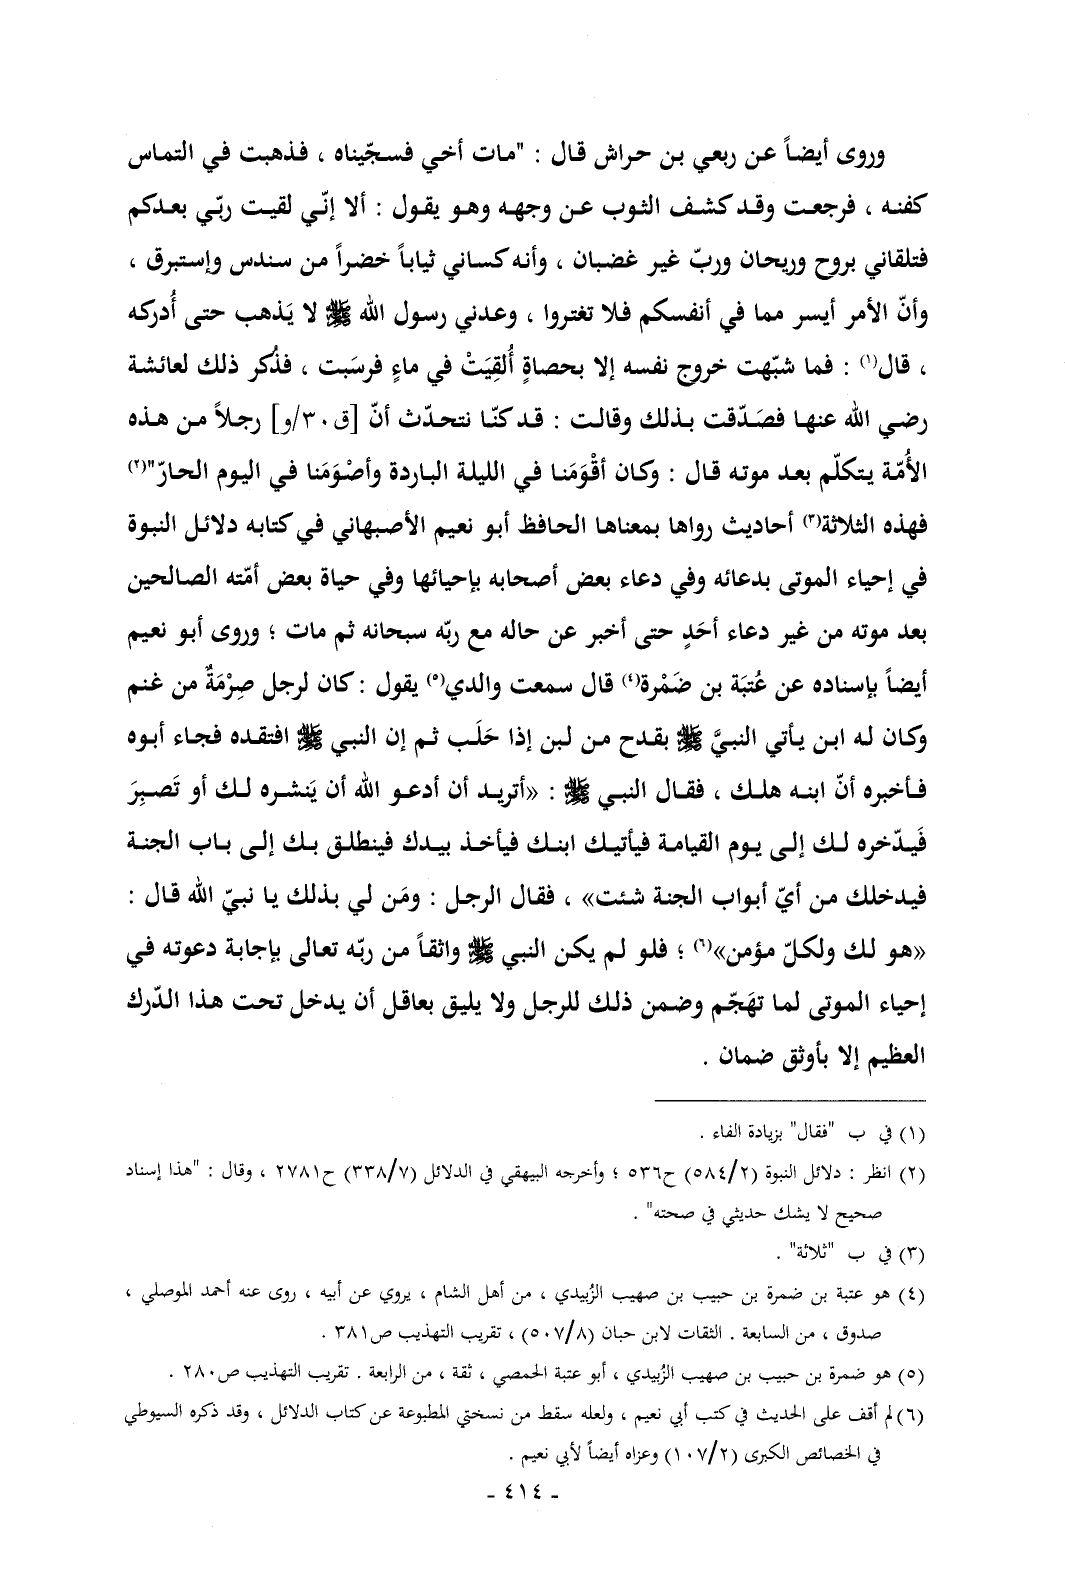 وروى أيضاً عن ربعي بن حراش قال : "مات أخي فسجّيناه ، فذهبت في التماس
كفنه ، فرجعت وقد كشف الثوب عن وجهه وهو يقول : ألا إنّي لقيت ربّي بعدكم
فتلقاني بروح وريحان وربّ غير غضبان ، وأنه كساني ثياباً خضراً من سندس وإستبرق ،
وأنّ الأمر أيسر مما في أنفسكم فلا تغتروا ، وعدني رسول الله ﷺ لا يَذهب حتى أُدركه
، قال(١) : فما شبّهت خروج نفسه إلا بحصاةٍ أُلقِيَتْ في ماءٍ فرسَبت ، فذُكر ذلك لعائشة
رضي الله عنها فصَدّقت بذلك وقالت : قد كنّا نتحدّث أنّ [ق٣٠/و] رجلاً من هذه
الأُمّة يتكلّم بعد موته قال : وكان أقْوَمَنا في الليلة الباردة وأصْوَمَنا في اليوم الحارّ"(٢)
فهذه الثلاثة(٣) أحاديث رواها بمعناها الحافظ أبو نعيم الأصبهاني في كتابه دلائل النبوة
في إحياء الموتى بدعائه وفي دعاء بعض أصحابه بإحيائها وفي حياة بعض أمّته الصالحين
بعد موته من غير دعاء أحَدٍ حتى أخبر عن حاله مع ربّه سبحانه ثم مات ؛ وروى أبو نعيم
أيضاً بإسناده عن عُتبَة بن ضَمْرة(٤) قال سمعت والدي(٥) يقول : كان لرجل صِرْمَةٌ من غنم
وكان له ابن يأتي النبيَّ ﷺ بقدح من لبن إذا حَلَب ثم إن النبي ﷺ افتقده فجاء أبوه
فأخبره أنّ ابنه هلك ، فقال النبي ﷺ : «أتريد أن أدعو الله أن يَنشره لك أو تَصبِرَ
فَيدّخره لك إلى يوم القيامة فيأتيك ابنك فيأخذ بيدك فينطلق بك إلى باب الجنة
فيدخلك من أيّ أبواب الجنة شئت» ، فقال الرجل : ومَن لي بذلك يا نبيّ الله قال :
«هو لك ولكلّ مؤمن»(٦) ؛ فلو لم يكن النبي ﷺ واثقاً من ربّه تعالى بإجابة دعوته في
إحياء الموتى لما تهَجّم وضمن ذلك للرجل ولا يليق بعاقل أن يدخل تحت هذا الدّرك
العظيم إلا بأوثق ضمان .
(١) في ب "فقال" بزيادة الفاء .
(٢) انظر : دلائل النبوة (٥٨٤/٢) ح٥٣٦ ؛ وأخرجه البيهقي في الدلائل (٣٣٨/٧) ح٢٧٨١ ، وقال : "هذا إسناد
صحيح لا يشك حديثي في صحته" .
(٣) في ب "ثلاثة" .
(٤) هو عتبة بن ضمرة بن حبيب بن صهيب الزُبيدي ، من أهل الشام ، يروي عن أبيه ، روى عنه أحمد الموصلي ،
صدوق ، من السابعة . الثقات لابن حبان (٥٠٧/٨) ، تقريب التهذيب ص٣٨١ .
(٥) هو ضمرة بن حبيب بن صهيب الزُبيدي ، أبو عتبة الحمصي ، ثقة ، من الرابعة . تقريب التهذيب ص٢٨٠ .
(٦) لم أقف على الحديث في كتب أبي نعيم ، ولعله سقط من نسختي المطبوعة عن كتاب الدلائل ، وقد ذكره السيوطي
في الخصائص الكبرى (١٠٧/٢) وعزاه أيضاً لأبي نعيم .
- ٤١٤ -